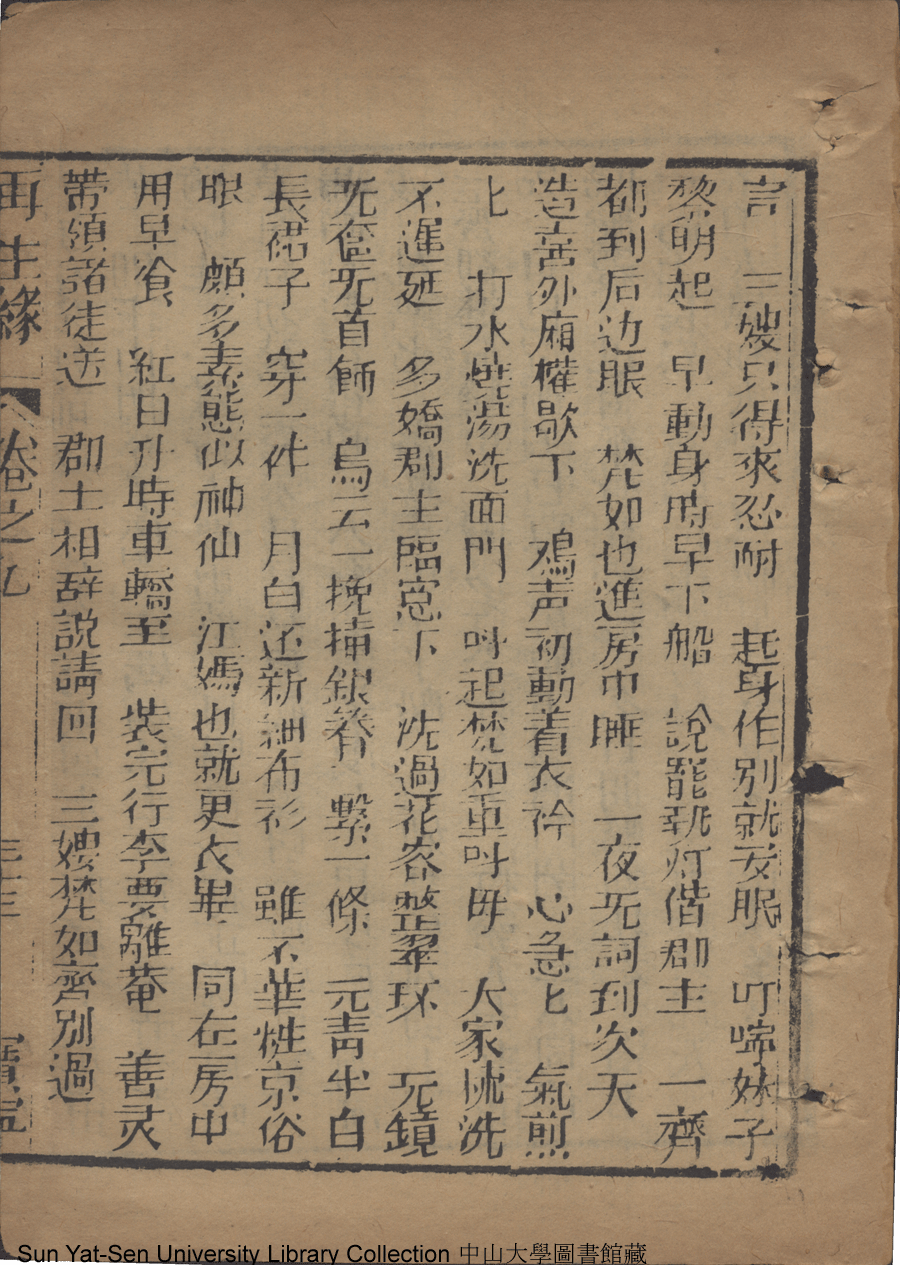 言　三嫂只得來忍耐　起身作別就安眠　叮嚀妹子
黎明起　早動身時早下船　說罷執灯偕郡主　一齊
都到后边眠　梵如也進房巾睡　一夜无詞到次天
造臺外廂權歇下　鳮声初動着衣衿　心急匕　氣煎
匕　打水燒湯洗面門　呌起梵如重呌毋　大家梳洗
不遲延　多嬌郡主臨窓下　洗過花容整翠环　无鏡
无奩旡首飾　烏云一挽揷銀簪　繫一條　元青半白
長裙子　穿一件　月白还新細布衫　雖不華性京俗
眼　頗多素態似神仙　江媽也就更衣畢　同在房中
用早飡　紅日升時車轎至　裝完行李要離菴　善灵
帶領諸徒送　郡主相辞說請回　三嫂梵如齊別過
再生緣　卷之九　三三　寶寧
Sun Yat-Sen University Library Collection 中山大學圖書館藏